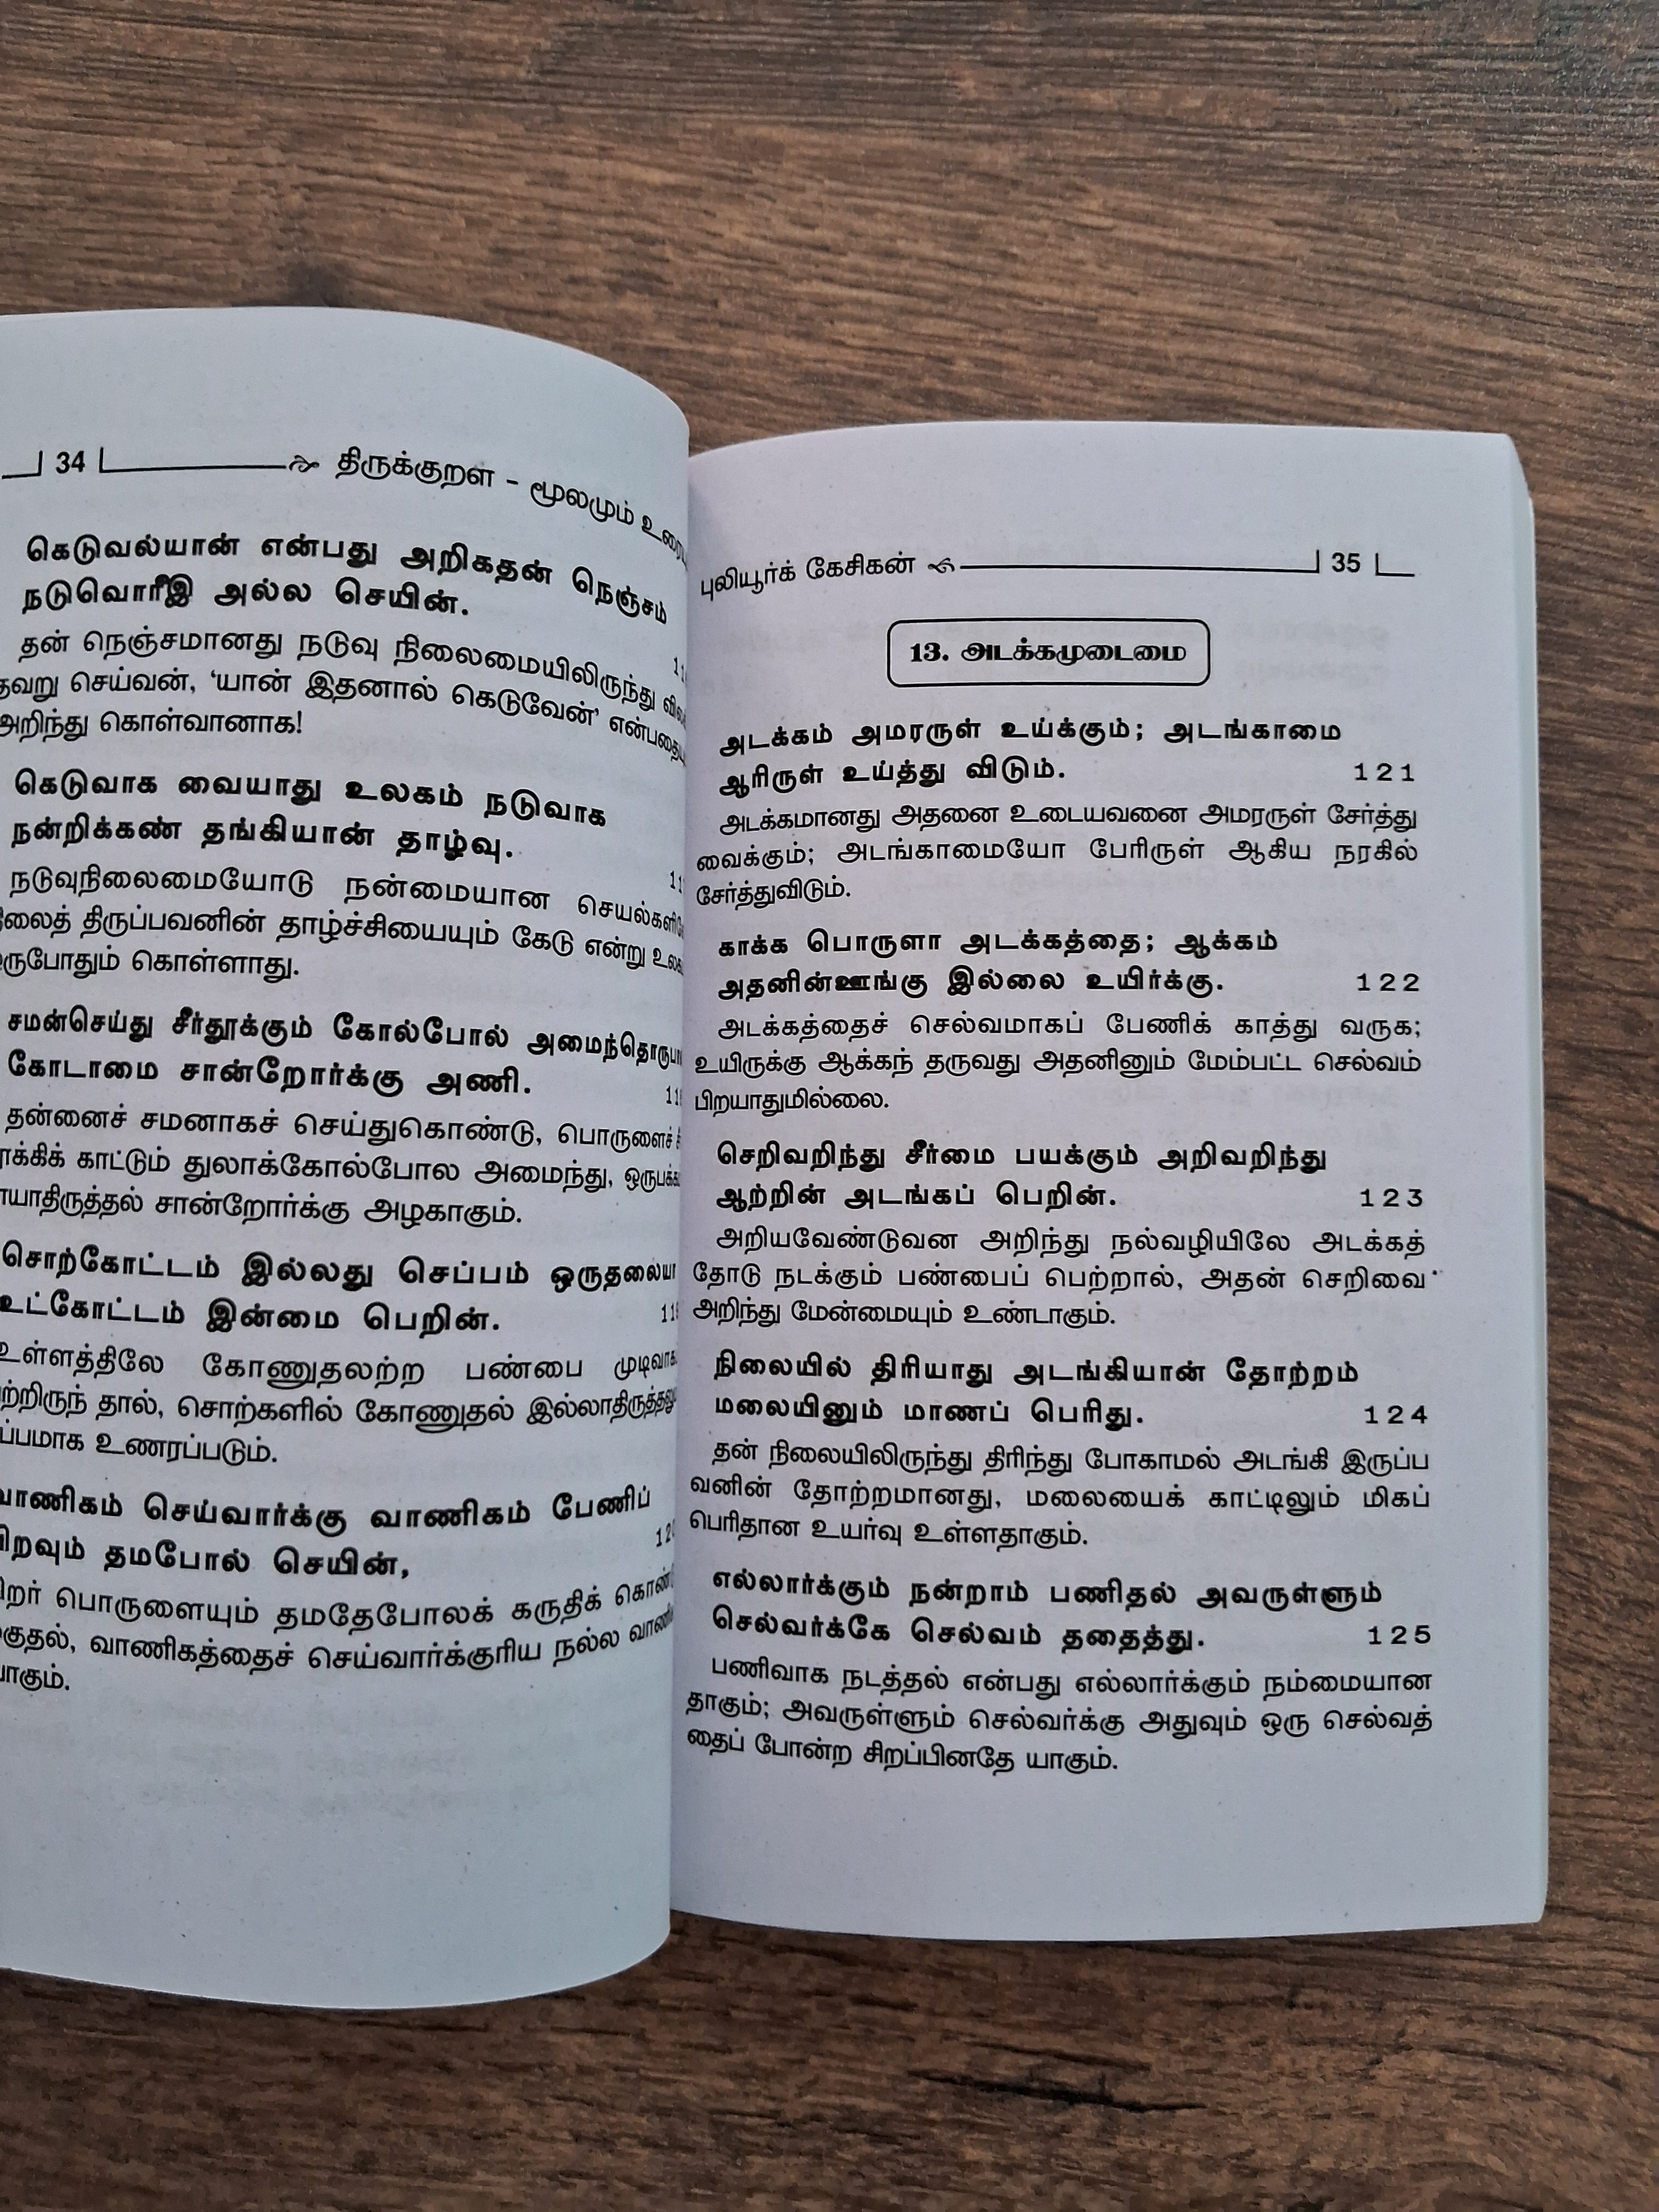 34
திருக்குறள் - மூலமும்
கெடுவல்யான் என்பது அறிகதன் நெஞ்சம்
நடுவொரீஇ அல்ல செயின்.
தன் நெஞ்சமானது நடுவு நிலைமையிலிருந்து
செய்வன், ‘யான் இதனால் கெடுவேன்’
அறிந்து கொள்வானாக!
கெடுவாக வையாது உலகம் நடுவாக
நன்றிக்கண் தங்கியான் தாழ்வு.
நடுவுநிலைமையோடு நன்மையான
திருப்பவனின் தாழ்ச்சியையும் கேடு என்று
கொள்ளாது.
சமன்செய்து சீர்தூக்கும் கோல்போல்
கோடாமை சான்றோர்க்கு அணி.
தன்னைச் சமனாகச் செய்துகொண்டு, பொருளைச்
காட்டும் துலாக்கோல்போல அமைந்து,
சான்றோர்க்கு அழகாகும்.
சொற்கோட்டம் இல்லது செப்பம்
உட்கோட்டம் இன்மை பெறின்.
உள்ளத்திலே கோணுதலற்ற பண்பை
தால், சொற்களில் கோணுதல்
உணரப்படும்.
வாணிகம் செய்வார்க்கு வாணிகம் பேணிப்
தமபோல் செயின்,
பொருளையும் தமதேபோலக் கருதிக்
வாணிகத்தைச் செய்வார்க்குரிய நல்ல
புலியூர்க் கேசிகன் 35
13. அடக்கமுடைமை
அடக்கம் அமரருள் உய்க்கும்; அடங்காமை
ஆரிருள் உய்த்து விடும். 121
அடக்கமானது அதனை உடையவனை அமரருள் சேர்த்து
வைக்கும்; அடங்காமையோ பேரிருள் ஆகிய நரகில்
சேர்த்துவிடும்.
காக்க பொருளா அடக்கத்தை; ஆக்கம்
அதனின்ஊங்கு இல்லை உயிர்க்கு. 122
அடக்கத்தைச் செல்வமாகப் பேணிக் காத்து வருக;
உயிருக்கு ஆக்கந் தருவது அதனினும் மேம்பட்ட செல்வம்
பிறயாதுமில்லை.
செறிவறிந்து சீர்மை பயக்கும் அறிவறிந்து
ஆற்றின் அடங்கப் பெறின். 123
அறியவேண்டுவன அறிந்து நல்வழியிலே அடக்கத்
தோடு நடக்கும் பண்பைப் பெற்றால், அதன் செறிவை
அறிந்து மேன்மையும் உண்டாகும்.
நிலையில் திரியாது அடங்கியான் தோற்றம்
மலையினும் மாணப் பெரிது. 124
தன் நிலையிலிருந்து திரிந்து போகாமல் அடங்கி இருப்ப
வனின் தோற்றமானது, மலையைக் காட்டிலும் மிகப்
பெரிதான உயர்வு உள்ளதாகும்.
எல்லார்க்கும் நன்றாம் பணிதல் அவருள்ளும்
செல்வர்க்கே செல்வம் ததைத்து. 125
பணிவாக நடத்தல் என்பது எல்லார்க்கும் நம்மையான
தாகும்; அவருள்ளும் செல்வர்க்கு அதுவும் ஒரு செல்வத்
தைப் போன்ற சிறப்பினதே யாகும்.